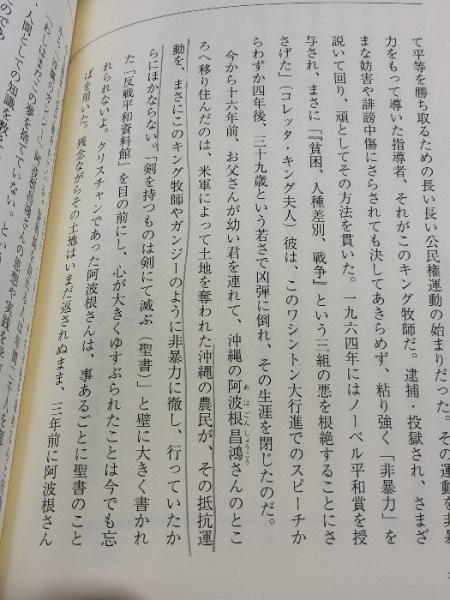 て平等を勝ち取るための長い長い公民権運動の始まりだった。その運動を非暴
力をもって導いた指導者、それがこのキング牧師だ。逮捕・投獄され、さまざ
まな妨害や誹謗中傷にさらされても決してあきらめず、粘り強く「非暴力」を
説いて回り、頑としてその方法を貫いた。一九六四年にはノーベル平和賞を授
与され、まさに「『貧困、人種差別、戦争』という三組の悪を根絶することにさ
さげた」（コレッタ・キング夫人）彼は、このワシントン大行進でのスピーチか
らわずか四年後、三十九歳という若さで凶弾に倒れ、その生涯を閉じたのだ。
今から十六年前、お父さんが幼い君を連れて、沖縄の阿波根昌鴻さんのとこ
あはごんしょうこう
ろへ移り住んだのは、米軍によって土地を奪われた沖縄の農民が、その抵抗運
動を、まさにこのキング牧師やガンジーのように非暴力に徹し、行っていたか
らにほかならない。「剣を持つものは剣にて滅ぶ（聖書）」と壁に大きく書かれ
た「反戦平和資料館」を目の前にし、心が大きくゆすぶられたことは今でも忘
れられないよ。クリスチャンであった阿波根さんは、事あるごとに聖書のこと
ばを用いた。残念ながらその土地はいまだ返されぬまま、三年前に阿波根さん